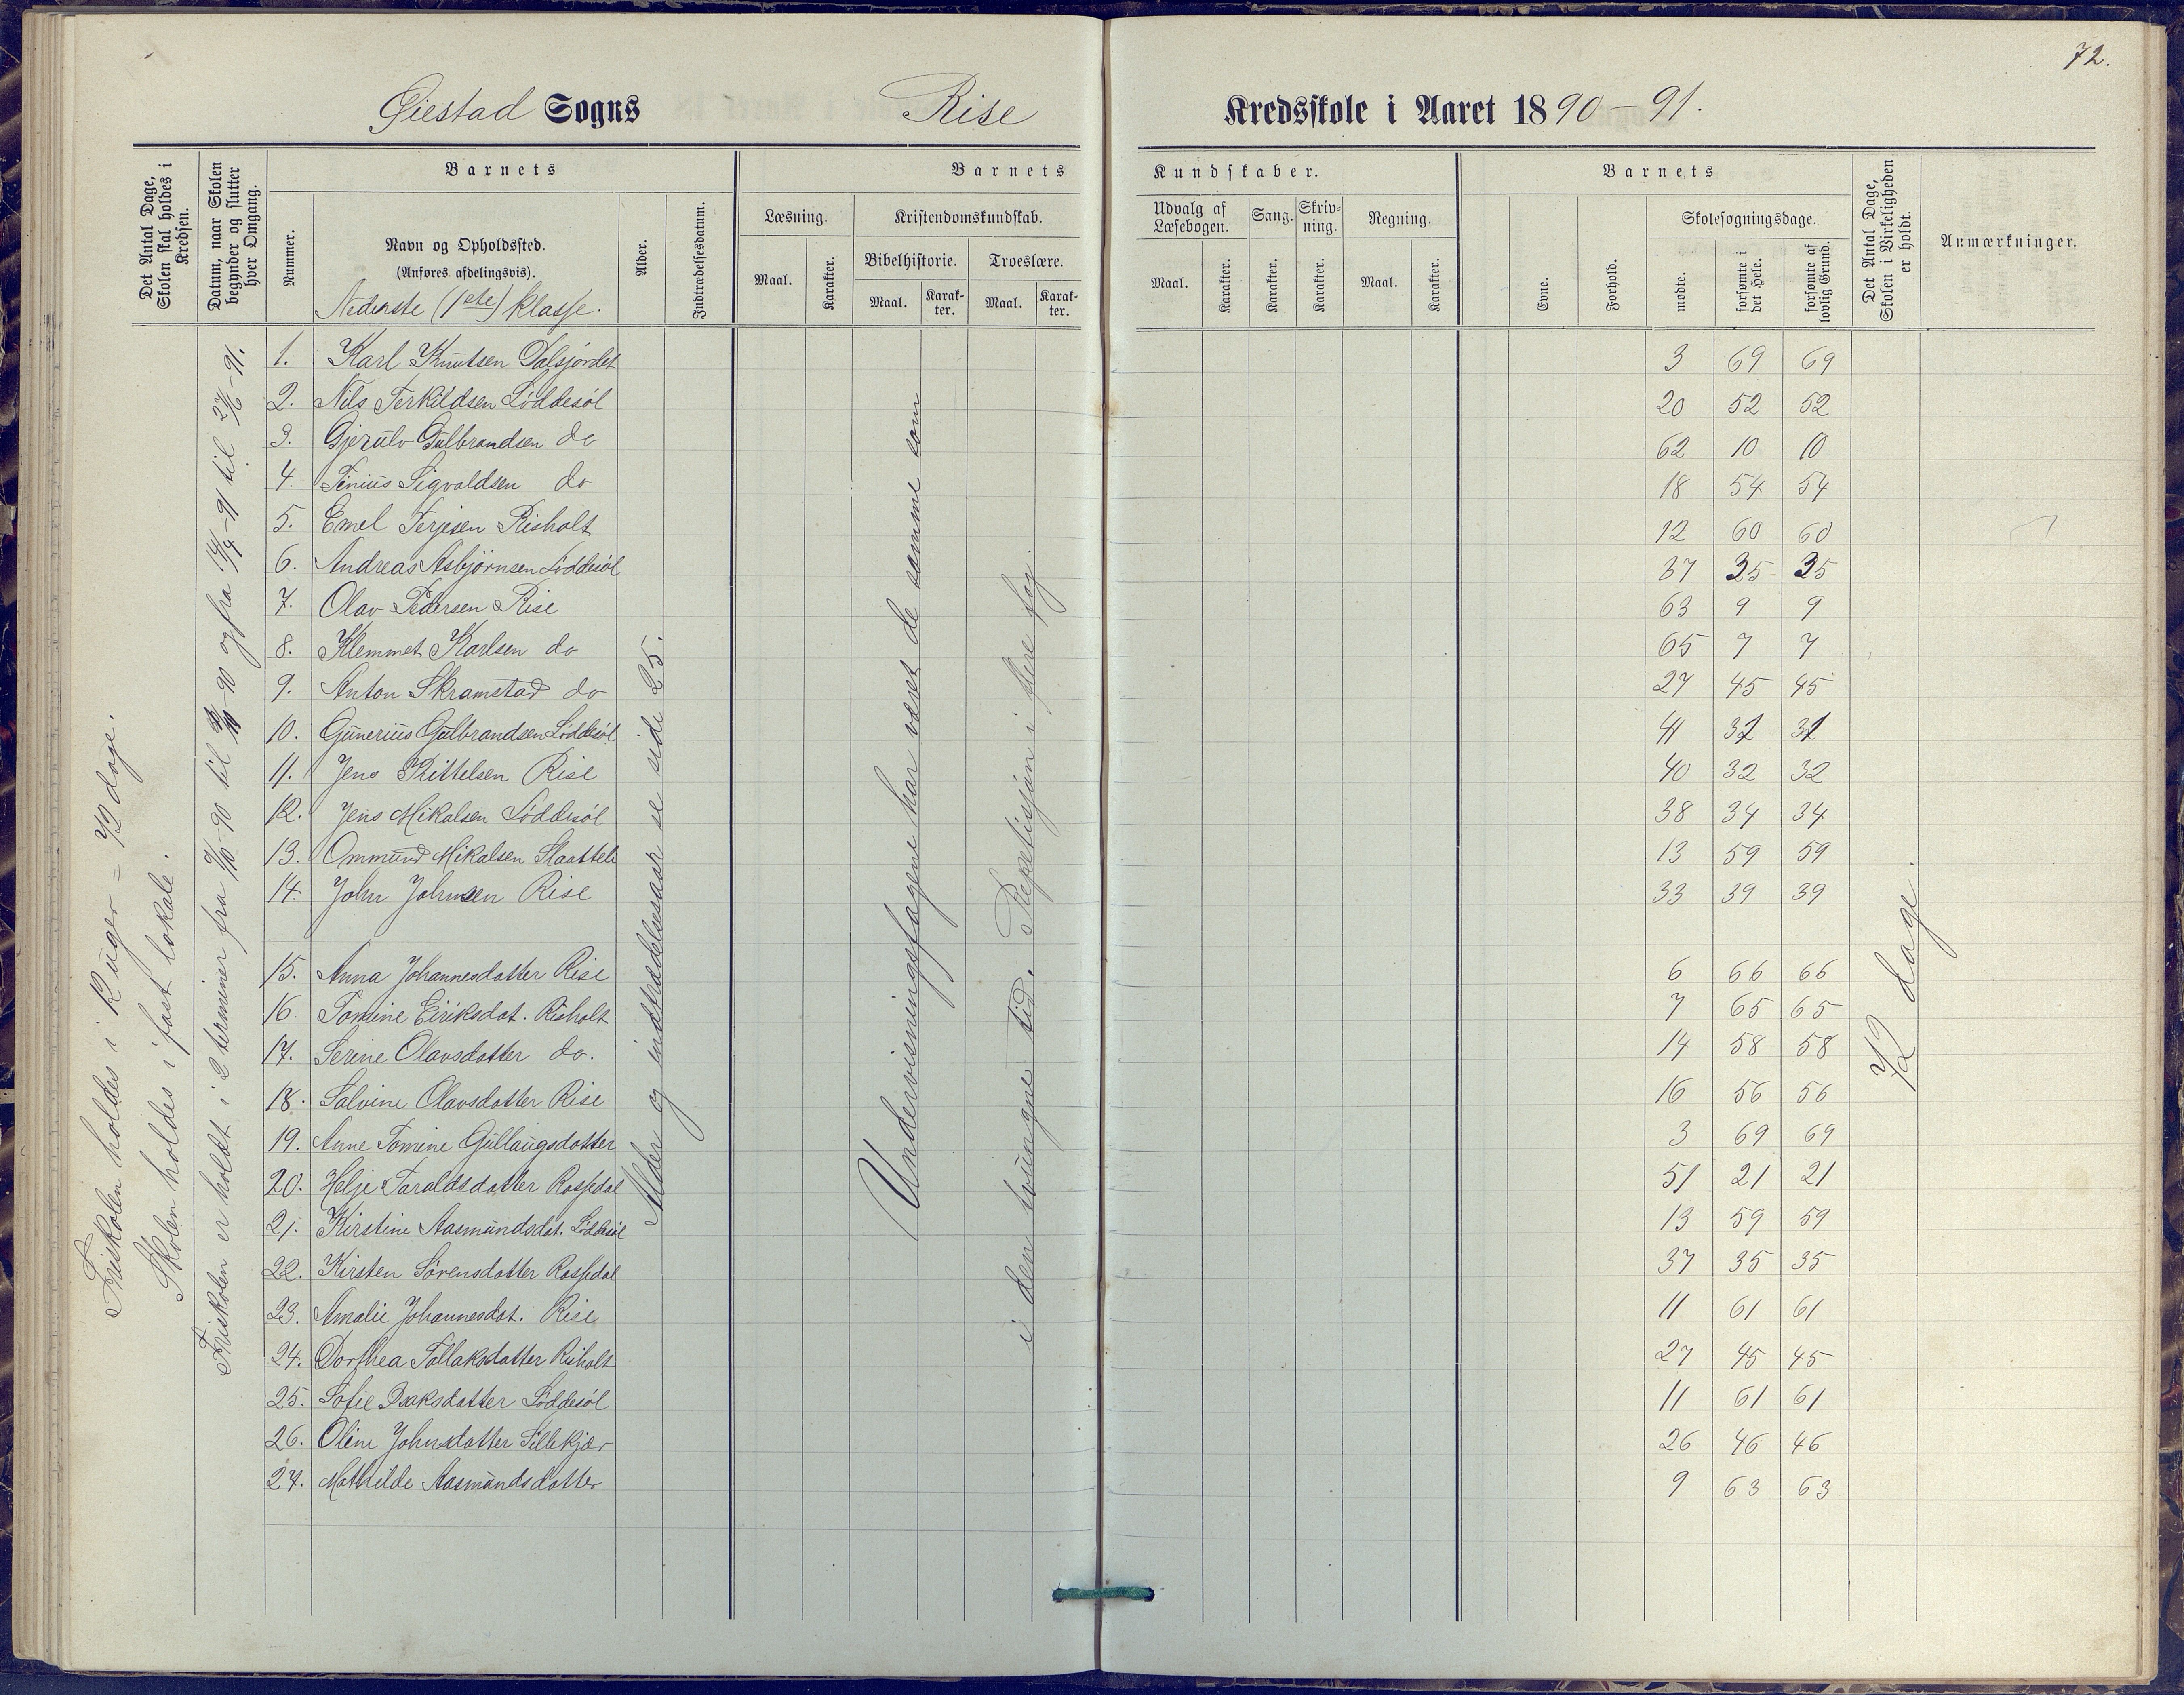 72.
Øiestad Sogns Rise Kredsskole i Aaret 1890-91.
Det Antal Dage, Skolen skal holdes i Kredsen.
Datum, naar Skolen begynder og slutter hver Omgang.
Barnets
Nummer.
Navn og Opholdssted.
(Anføres afdelingsvis).
Nederste (1ste) klasse.
Alder.
Indtrædelsesdatum.
Barnets Kundskaber.
Læsning.
Maal. Karakter.
Kristendomskundskab.
Bibelhistorie. Troeslære.
Maal. Karakter. Maal. Karakter.
Udvalg af Læsebogen.
Maal. Karakter.
Sang. Karakter.
Skrivning. Karakter.
Regning.
Maal. Karakter.
Barnets
Evne. Forhold.
Skolesøgningsdage.
mødte. forsømte i det Hele. forsømte af lovlig Grund.
Det Antal Dage, Skolen i Virkeligheden er holdt.
Anmærkninger.
Friskolen holdes i 12 uger = 72 dage.
Skolen holdes i fast lokale.
Friskolen er holdt i 2 terminer fra
til
og fra 14/4-91 til 27/6-91.
1. Karl Knutsen Dalsjordet 3 69 69
2. Nils Terkildsen Løddesøl 20 52 52
3. Gjerulv Gulbrandsen do 62 10 10
4. Tinius Sigvaldsen do 18 54 54
5. Emel Terjesen Risholt 12 60 60
6. Andreas Asbjørnsen Løddesøl 37 35 35
7. Olav Pedersen Rise 63 9 9
8. Klemmet Karlsen do 65 7 7
9. Anton Skramstad do 27 45 45
10. Gunerius Gulbrandsen Løddesøl 41 31 31
11. Jens Kittelsen Rise 40 32 32
12. Jens Mikalsen Løddesøl 38 34 34
13. Ommund Mikalsen Slaatteli 13 59 59
14. John Johnsen Rise 33 39 39
15. Anna Johannesdatter Rise 6 66 66
16. Tomine Eiriksdat. Risholt 7 65 65
17. Serine Olavsdatter do. 14 58 58
18. Salvine Olavsdatter Rise 16 56 56
19. Anne Tomine Gullaugsdatter 3 69 69
20. Helje Taraldsdatter Rossedal 51 21 21
21. Kirstine Aasmundsdat. Løddesøl 13 59 59
22. Kirsten Sørensdatter Rossedal 37 35 35
23. Amalie Johannesdat. Rise 11 61 61
24. Dorthea Tollaksdatter Risholt 27 45 45
25. Sofie Isaksdatter Løddesøl 11 61 61
26. Oline Johnsdatter Lillekjær 26 46 46
27. Mathilde Aasmundsdatter 9 63 63
Alder og indtrædelsesaar se side 25.
Undervisningsfagene har været de samme som
i den tvungne tid. Repetisjon i flere fag.
72 dage.